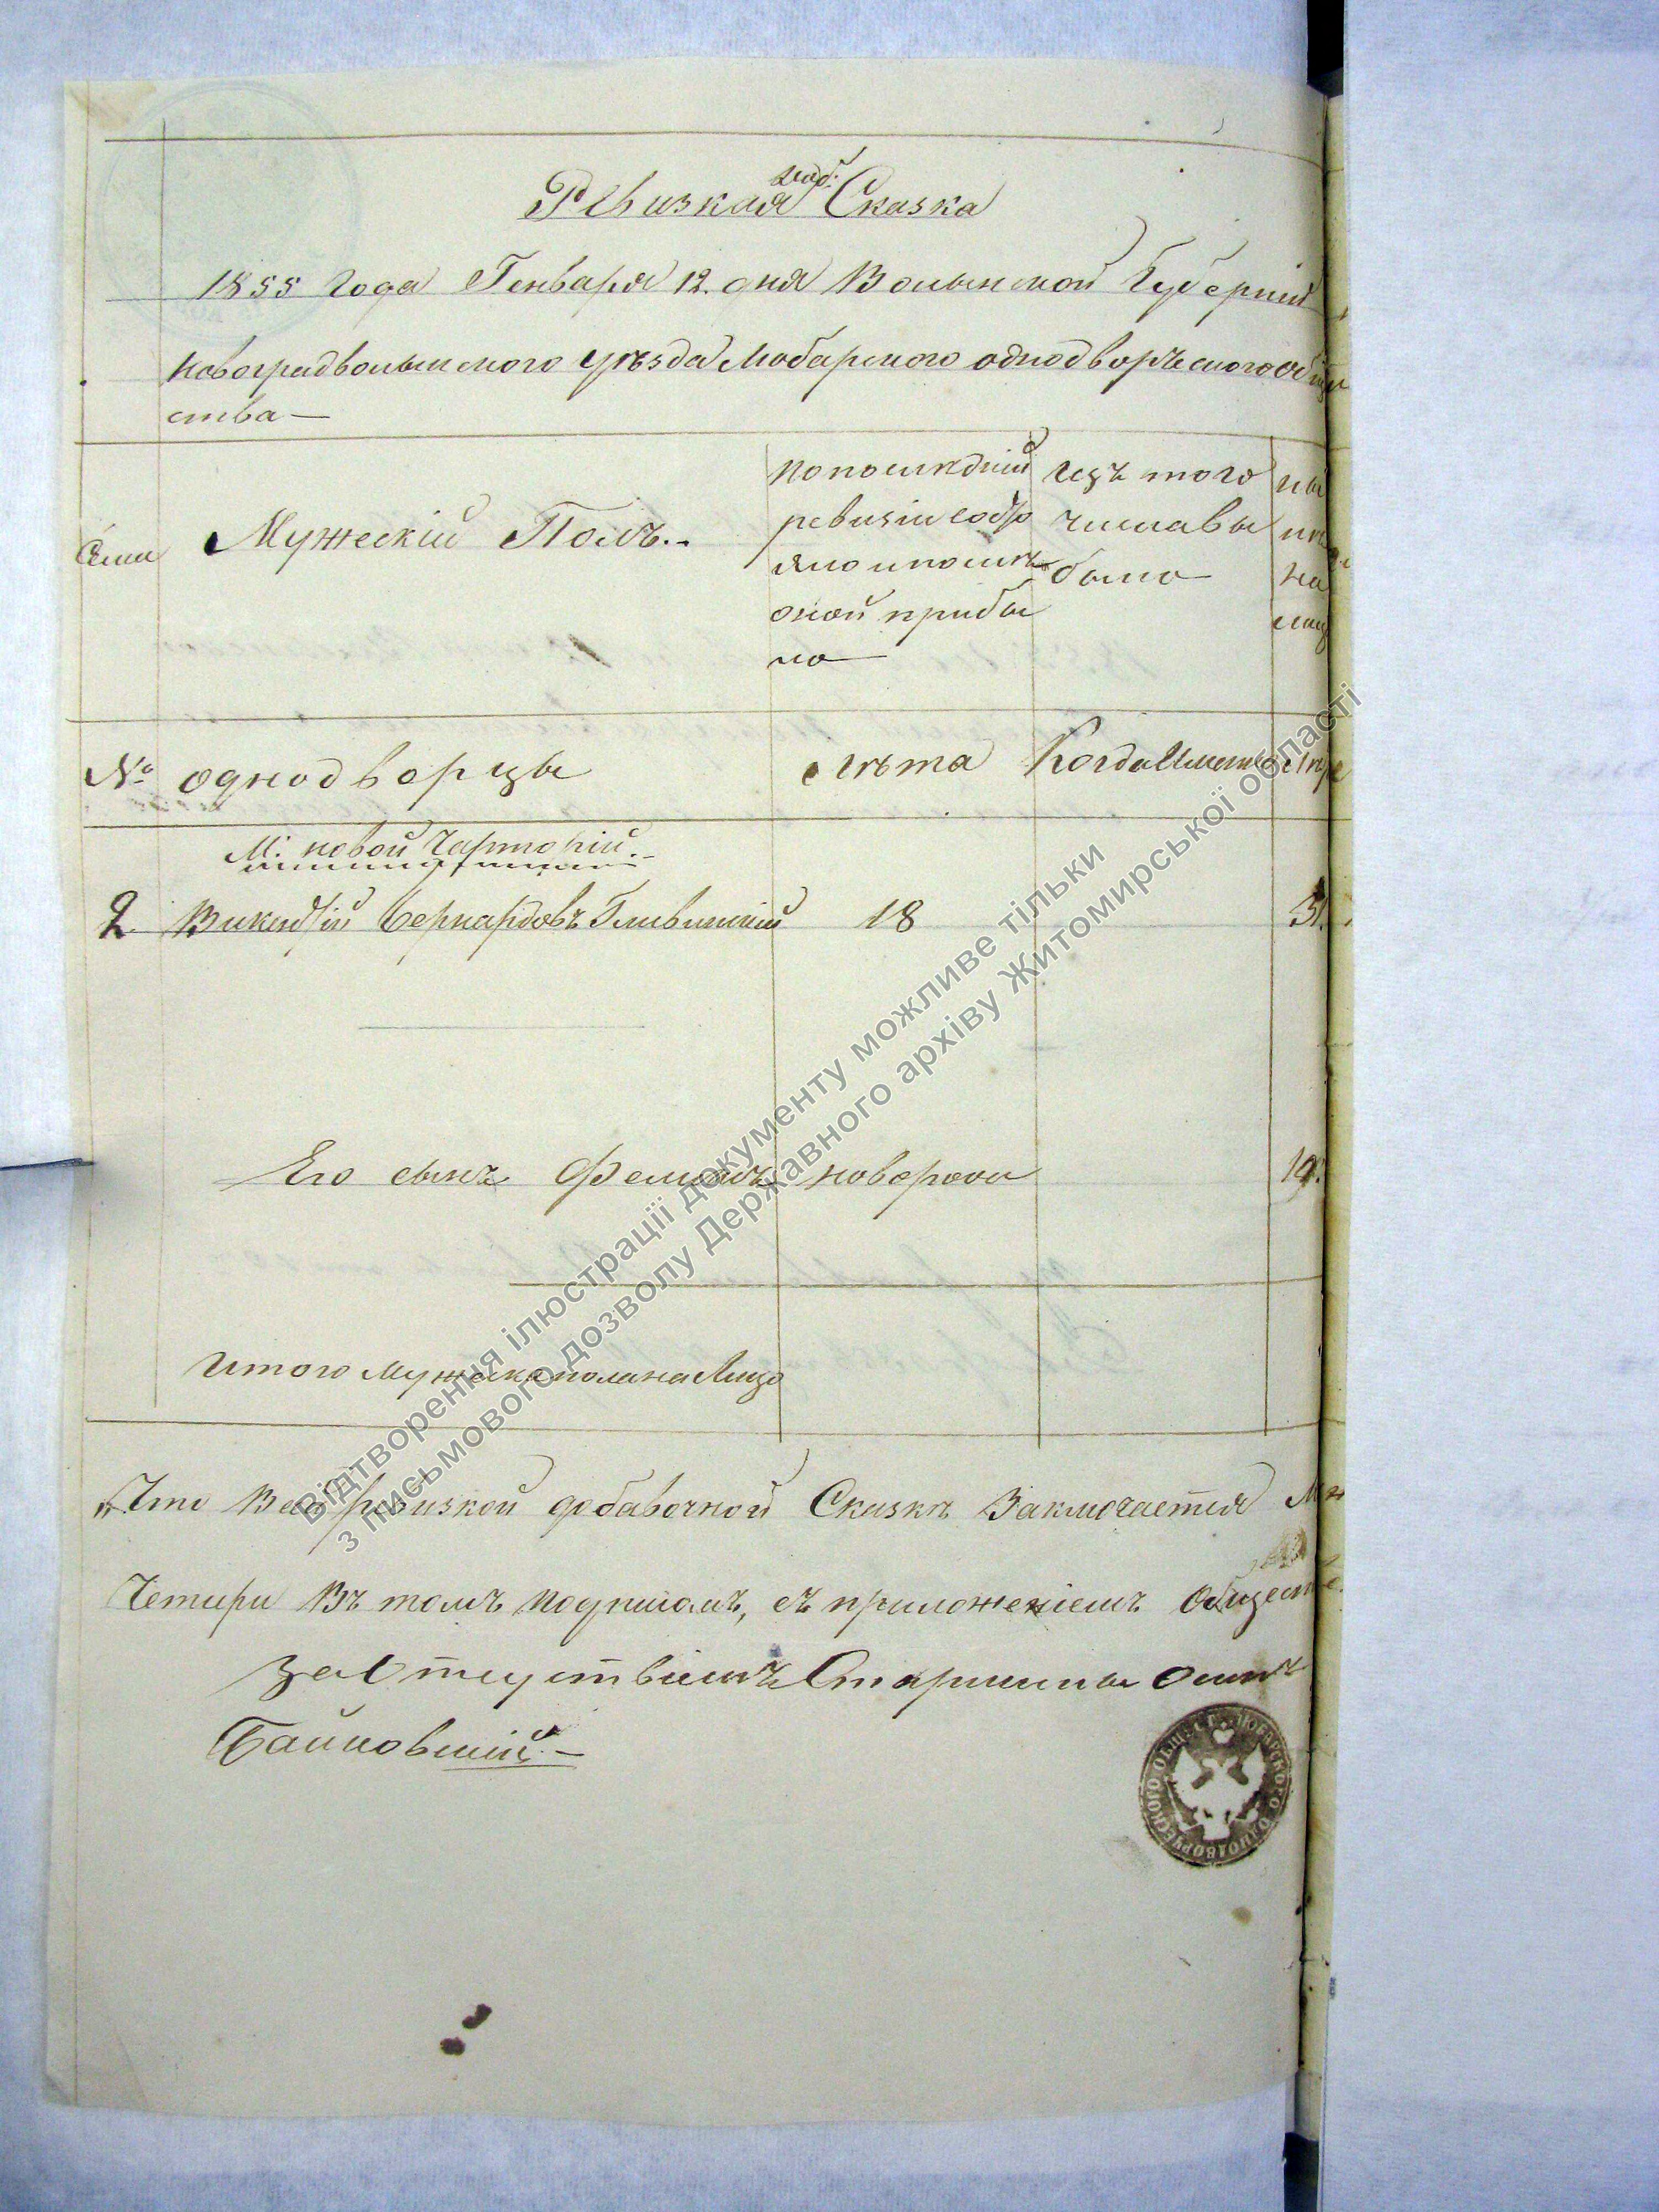 доб.
Ревизкая Сказка
1855 года Генваря 12. дня Волынской Губерній
Новоградволынского уѣзда Любарского однодворъческого общ
ства —
Семи
Мужескій Полъ.
По последній
ревизіи состо
яло и послѣ
оной прибы
ло
Изъ того
числа вы
было
ны
нѣ
на
лиц
№
однодворцы
лѣта
Когда Именно
Лѣт
М. новой Чарторіи.
2. Викентій Бернардовъ Гливинскій 18 31.
Его сынъ Феликсъ новорож 19.
Итого мужеска пола на Лицо
Что Всей ревизкой добавочной Сказкѣ Заключается
Четыри Въ томъ подписомъ, съ приложеніемъ Общест
За отсутствіемъ Старшины
Байковскій. —
ЛЮБАРСКОГО ОДНОДВОРЧЕСКОГО ОБЩЕСТ
Відтворення ілюстрації документу можливе тільки
з письмового дозволу Державного архіву Житомирської області